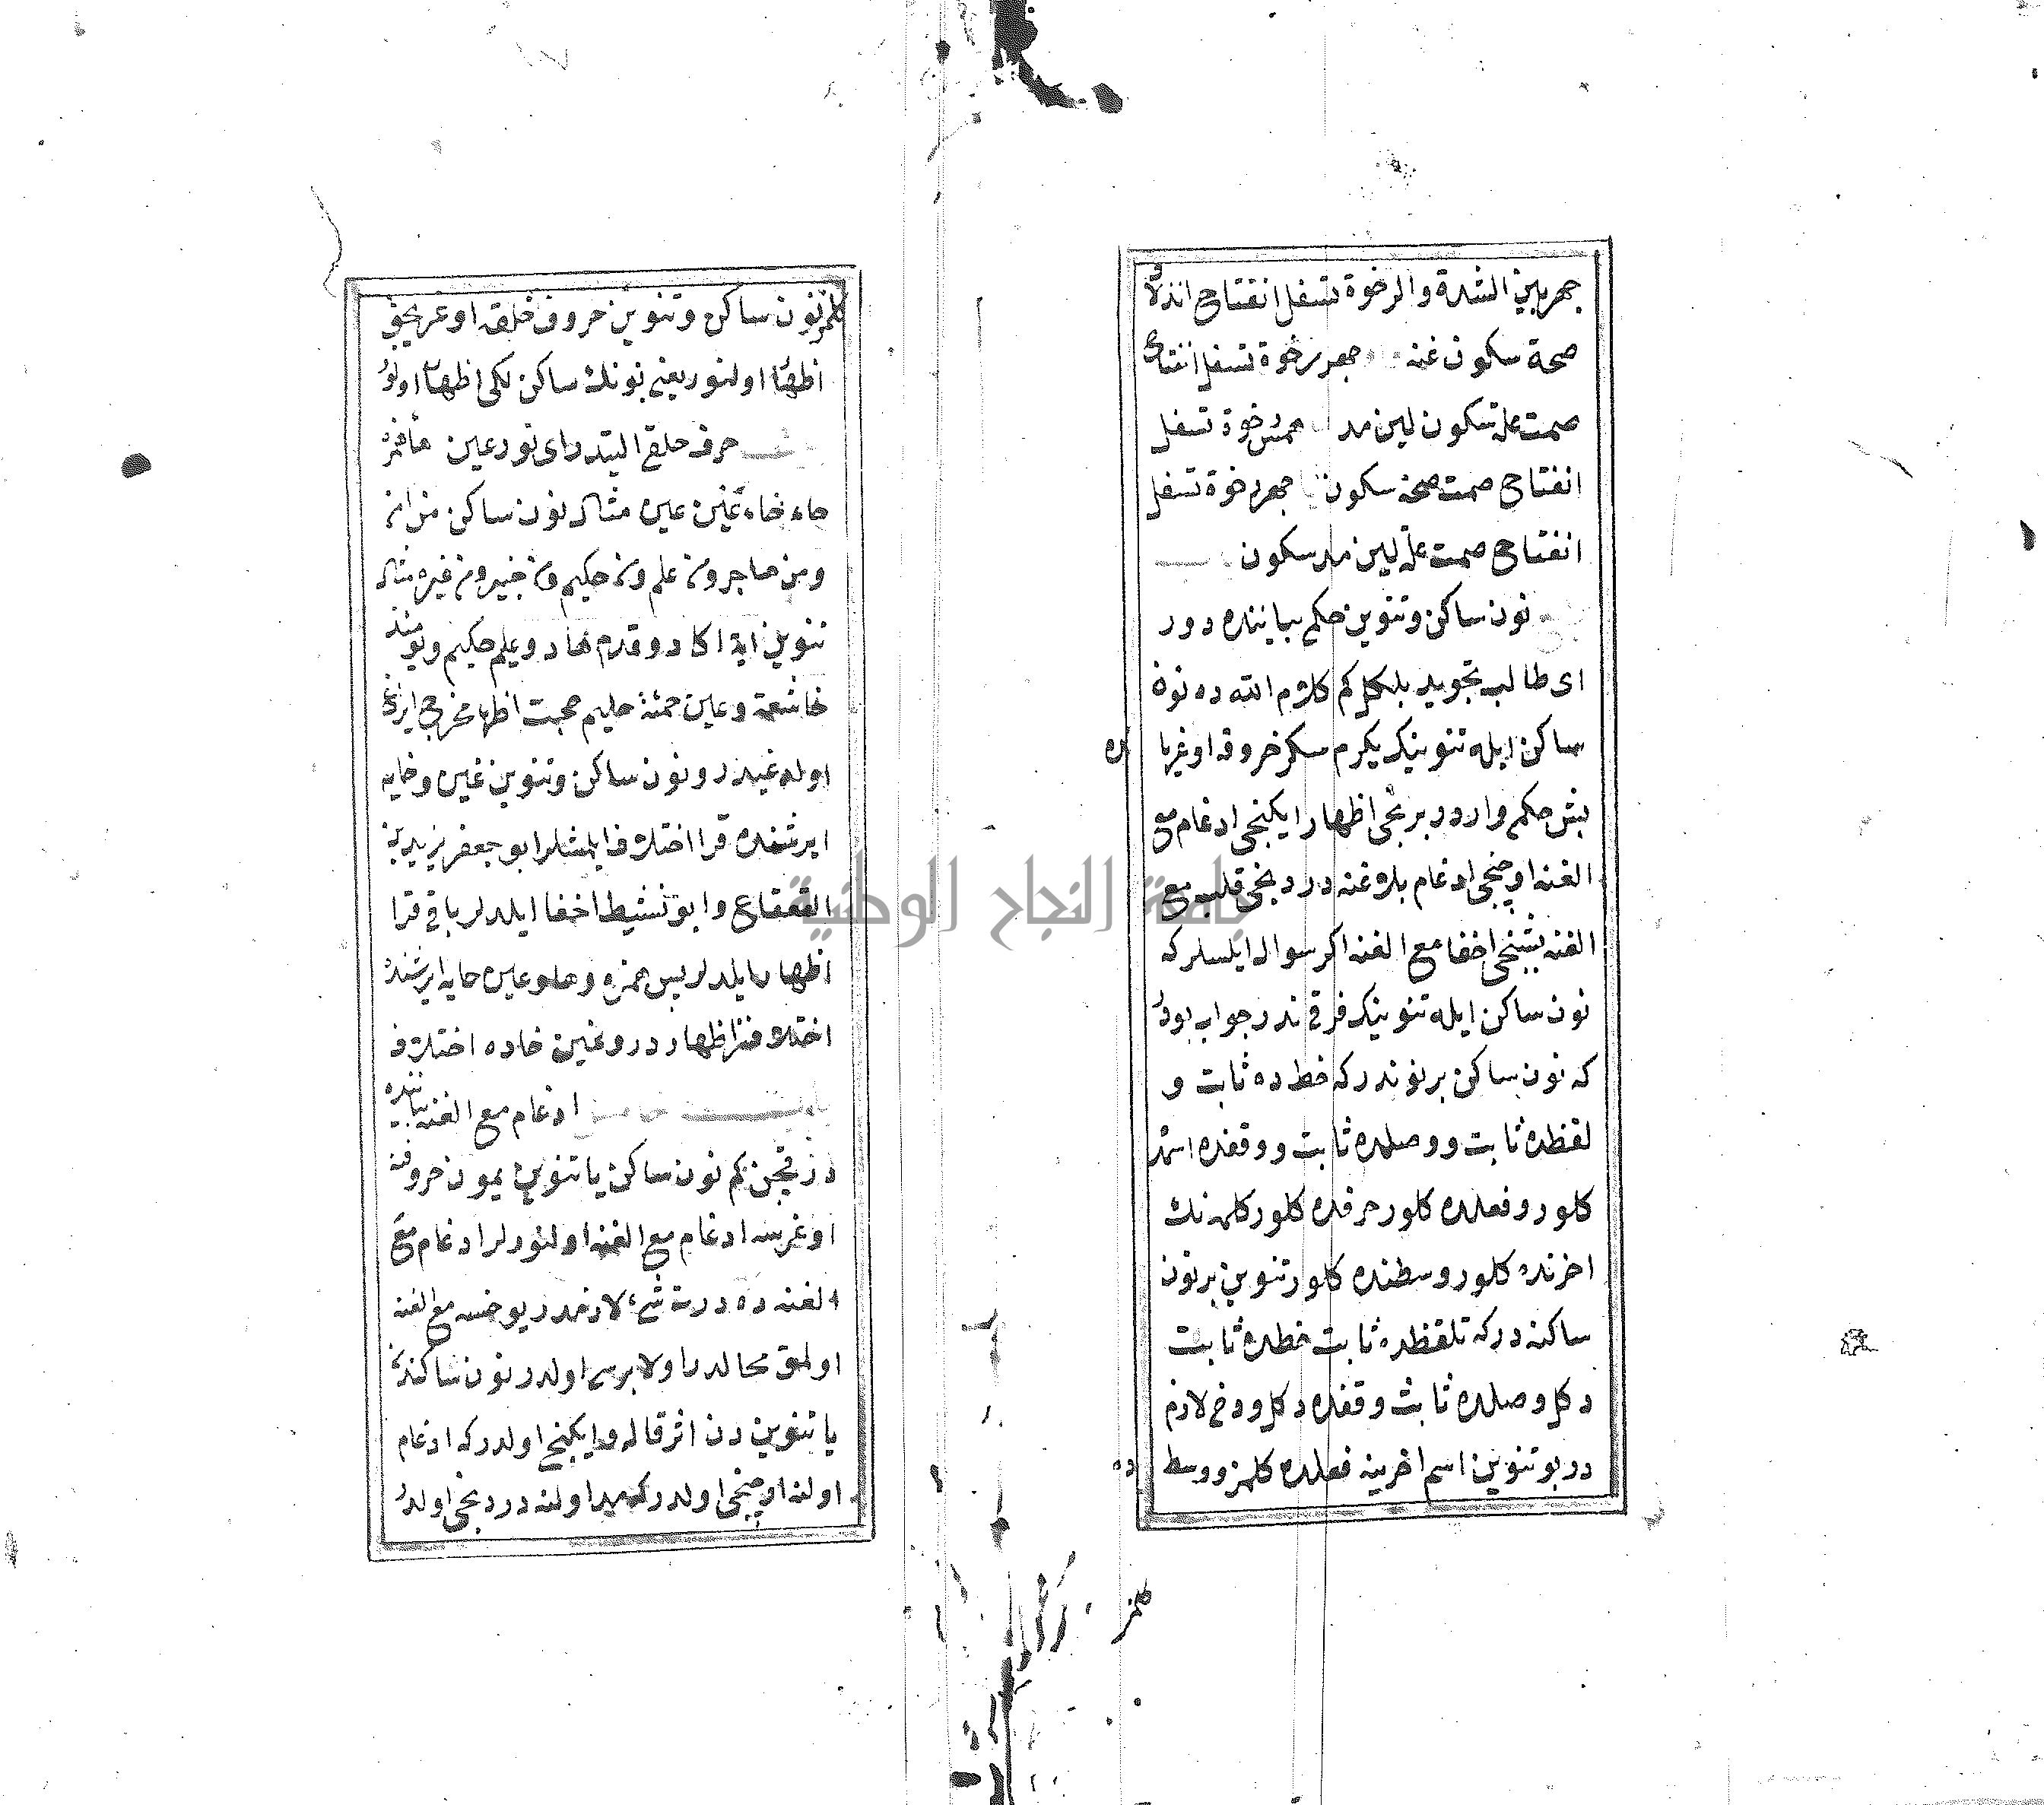 جهر بين الشدة والرخوة تسفل انفتاح انذلاق
صحة سكون غنه جهر رخوة تسفل انفتاح
صمت علة سكون لين مد همس رخوة تسفل
انفتاح صمت صحة سكون جهر رخوة تسفل
انفتاح صمت علة لين مد سكون
نون ساكن وتنوين حكم بياننده دور
اى طالب تجويد بلكل كم كلام الله ده نون
ساكن ايله تنوينك يكرم سكز حروفه اوغريا
ده
بش حكم واردر برنجى اظهار ايكنجى ادغام مع
الغنه اوچنجى ادغام بلا غنه دردنجى قلب مع
الغنه بشنجى اخفا مع الغنه اكر سوال ايلسلر كه
نون ساكن ايله تنوينك فرقى ندر جواب بودر
كه نون ساكن بر نوندر كه خط ده ثابت و
لفظده ثابت و وصلده ثابت و وقفده اسمده
كلور و فعلده كلور حرفده كلور كلمه نك
اخرنده كلور وسطنده كلور تنوين بر نون
ساكنه در كه تلفظده ثابت خطده ثابت
دكل وصلده ثابت وقفده دكل ودخى لازم
در بو تنوين اسم اخرينه فعلده كلمز و وسط
ده
كلمز
كلمز نون ساكن وتنوين حروف حلقه اوغريجق
اظهار اولنور يعنى نونك ساكن لكى اظهار اولنور
حرف حلقى التيدر اى نور عين ها همزه
حاء خاء غين عين مثال نون ساكن من امن
ومن هاجر ومن علم ومن حكيم ومن خبير ومن غيره مثال
تنوين ايذا كادو قدم هاد وعليم حكيم ويومئذ
خاشعة وعين حمئة حليم صحبت اظهار مخرج ايراغ
اولدغيدر و نون ساكن وتنوين غين وخايه
ايرشنده قرا اختلاف ايلمشلر ابو جعفر يزيد بن
القعقاع و ابو نشيط اخفا ايلديلر باقى قرا
اظهار ايلديلر پس همزه وها وعين حايه ايرشنده
اختلافسز اظهار در وغين خاده اختلاف
ادغام مع الغنه بياننده
در قچن كم نون ساكن يا تنوين يمون حروفنه
اوغرسه ادغام مع الغنه اولنورلر ادغام مع
الغنه ده درت شئ لازمدر يوخسه مع الغنه
اولمق محالدر اولا برسى اولدر نون ساكندن
يا تنوين دن اثر قاله و ايكنجى اولدر كه ادغام
اولنه اوچنجى اولدر كه مد اولنه دردنجى اولدر
جامعة النجاح الوطنية